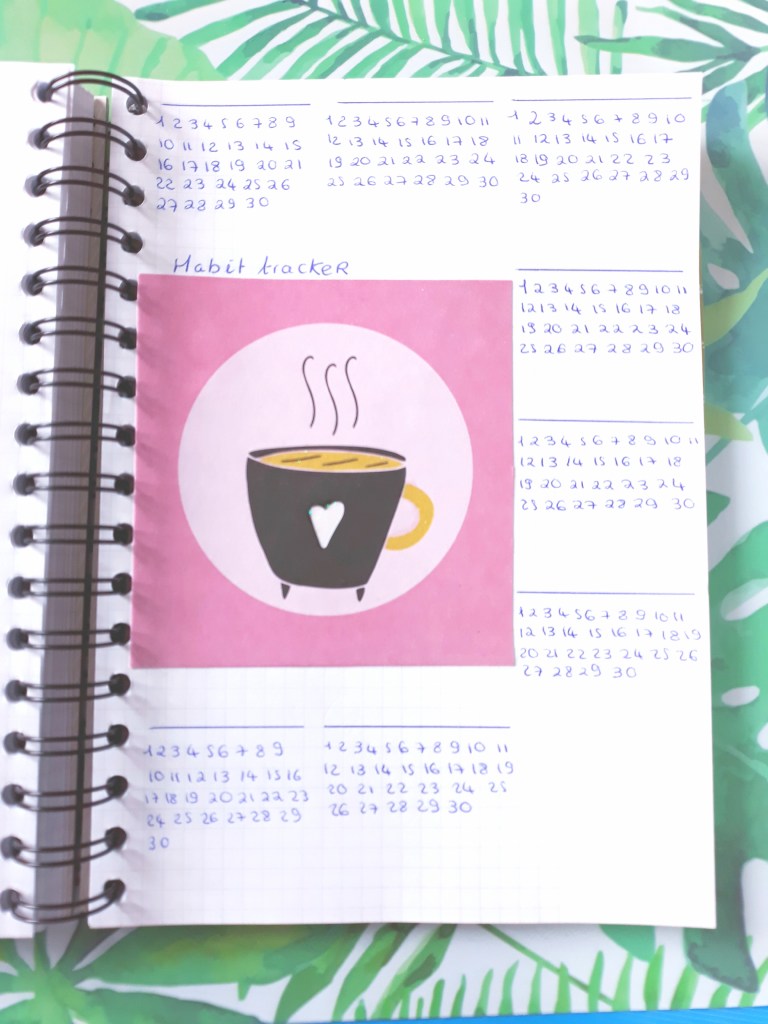 1 2 3 4 5 6 7 8 9
10 11 12 13 14 15
16 17 18 19 20 21
22 23 24 25 26
27 28 29 30
1 2 3 4 5 6 7 8 9 10 11
12 13 14 15 16 17 18
19 20 21 22 23 24
25 26 27 28 29 30
1 2 3 4 5 6 7 8 9 10
11 12 13 14 15 16 17
18 19 20 21 22 23
24 25 26 27 28 29
30
Habit tracker
1 2 3 4 5 6 7 8 9 10 11
12 13 14 15 16 17 18
19 20 21 22 23 24
25 26 27 28 29 30
1 2 3 4 5 6 7 8 9 10 11
12 13 14 15 16 17 18
19 20 21 22 23 24
25 26 27 28 29 30
1 2 3 4 5 6 7 8 9 10 11
12 13 14 15 16 17 18 19
20 21 22 23 24 25 26
27 28 29 30
1 2 3 4 5 6 7 8 9
10 11 12 13 14 15 16
17 18 19 20 21 22 23
24 25 26 27 28 29
30
1 2 3 4 5 6 7 8 9 10 11
12 13 14 15 16 17 18 19
20 21 22 23 24 25
26 27 28 29 30